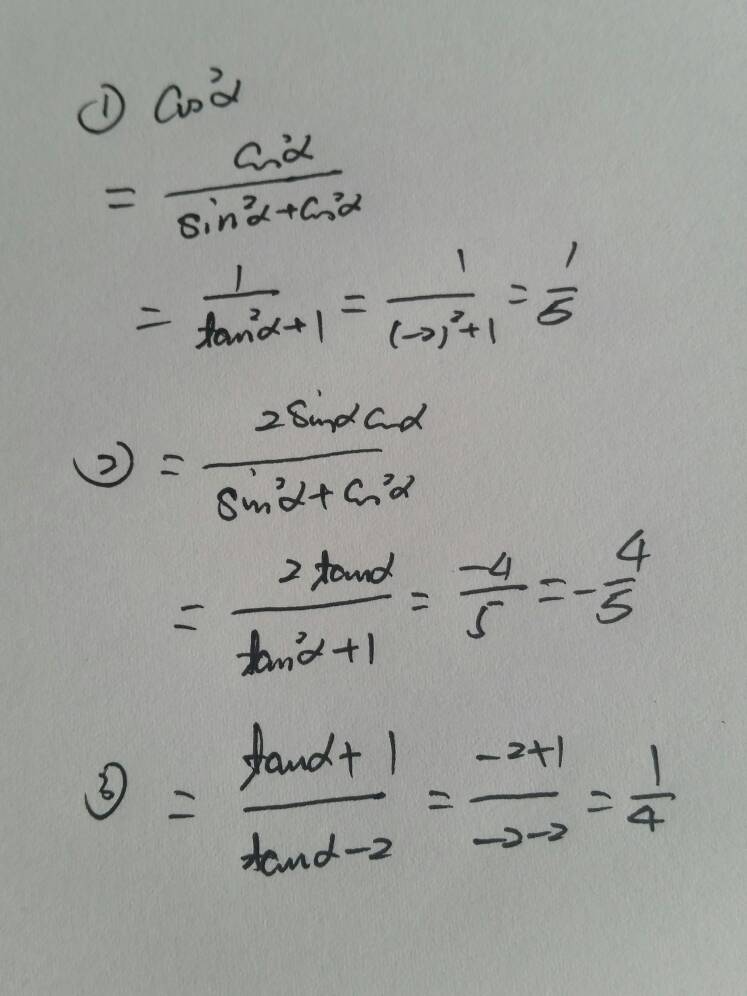 ① cos²α
= cos²α / (sin²α+cos²α)
= 1/(tan²α+1) = 1/((-2)²+1) = 1/5
② = 2sinαcosα / (sin²α+cos²α)
= 2tanα/(tan²α+1) = -4/5 = -4/5
③ = (tanα+1)/(tanα-2) = (-2+1)/(-2-2) = 1/4